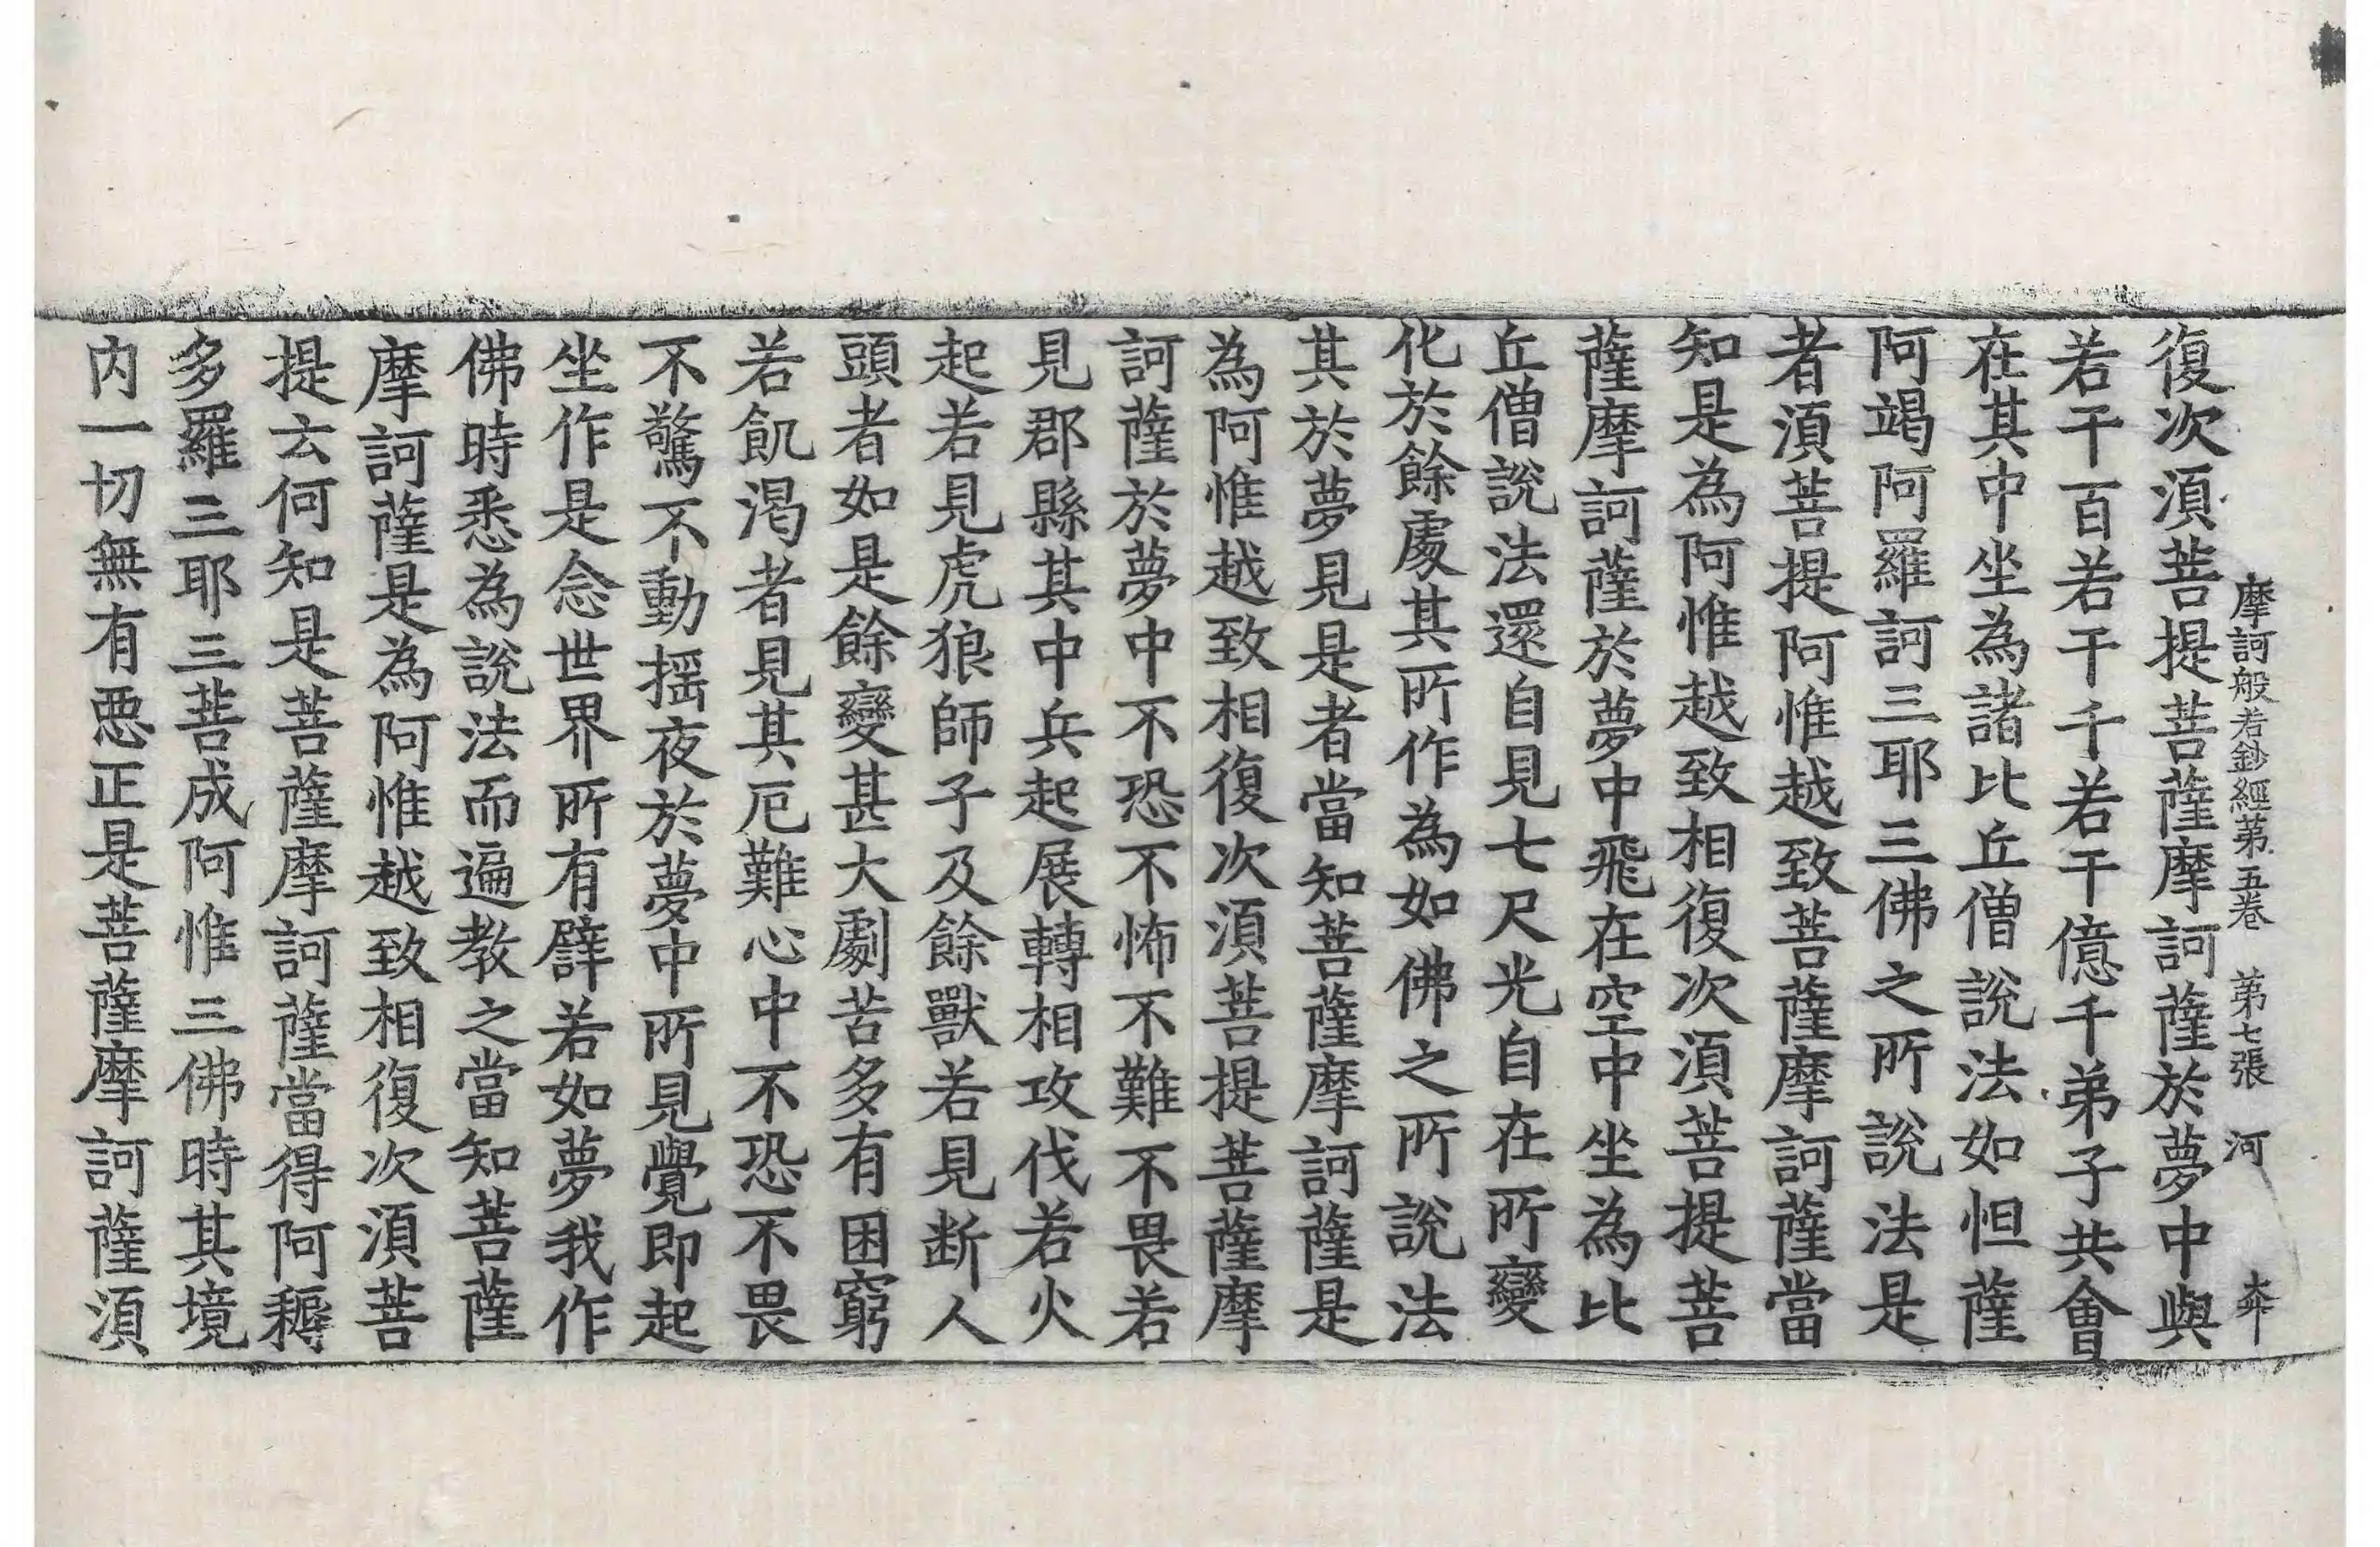 摩訶般若鈔經第五卷　第七張　河　𡘜
復次須菩提菩薩摩訶薩於夢中與
若干百若干千若干億千弟子共會
在其中坐為諸比丘僧說法如怛薩
阿竭阿羅訶三耶三佛之所說法是
者須菩提阿惟越致菩薩摩訶薩當
知是為阿惟越致相復次須菩提菩
薩摩訶薩於夢中飛在空中坐為比
丘僧說法還自見七尺光自在所變
化於餘處其所作為如佛之所說法
其於夢見是者當知菩薩摩訶薩是
為阿惟越致相復次須菩提菩薩摩
訶薩於夢中不恐不怖不難不畏若
見郡縣其中兵起展轉相攻伐若火
起若見虎狼師子及餘獸若見断人
頭者如是餘變甚大劇苦多有困窮
若飢渴者見其厄難心中不恐不畏
不驚不動揺夜於夢中所見覺即起
坐作是念世界所有譬若如夢我作
佛時悉為說法而遍教之當知菩薩
摩訶薩是為阿惟越致相復次須菩
提云何知是菩薩摩訶薩當得阿耨
多羅三耶三菩成阿惟三佛時其境
内一切無有惡正是菩薩摩訶薩須